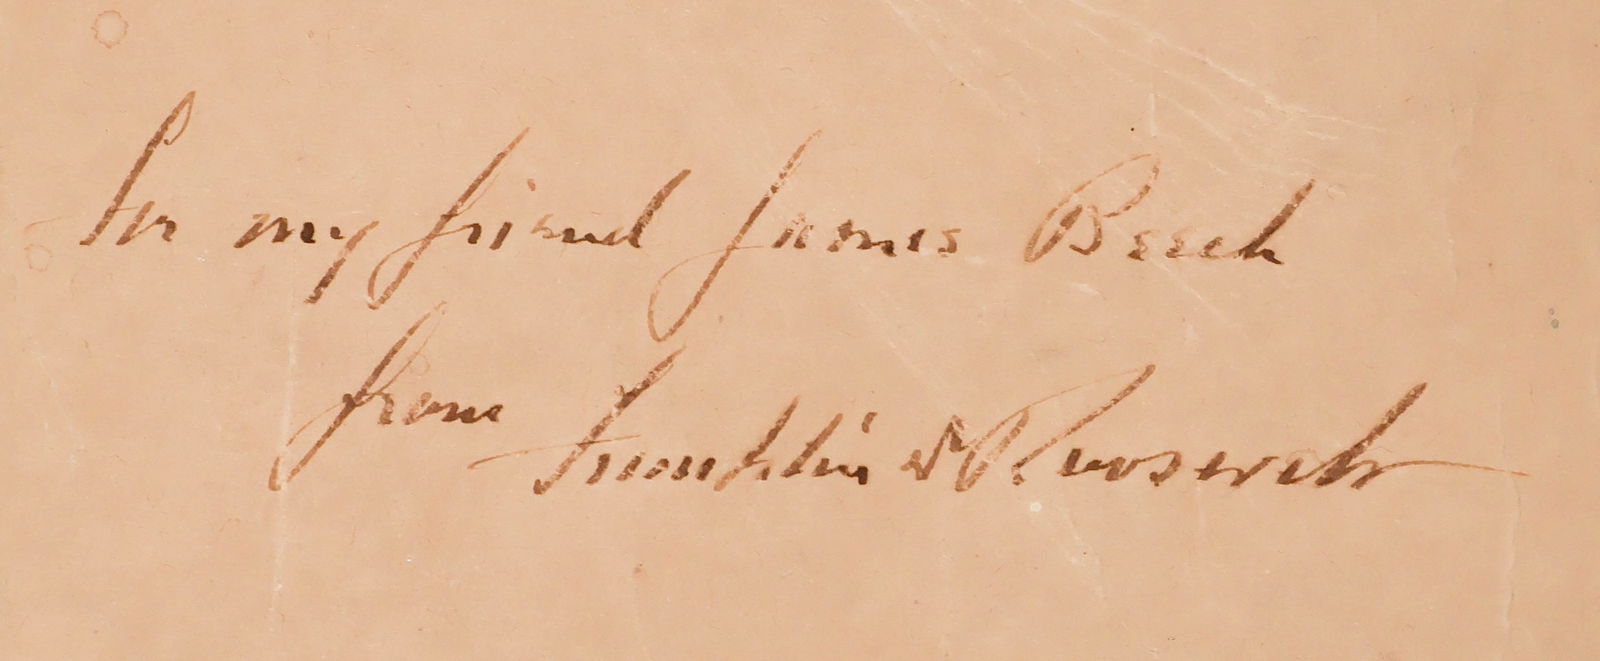 For my friend James Beech
from Franklin D Roosevelt